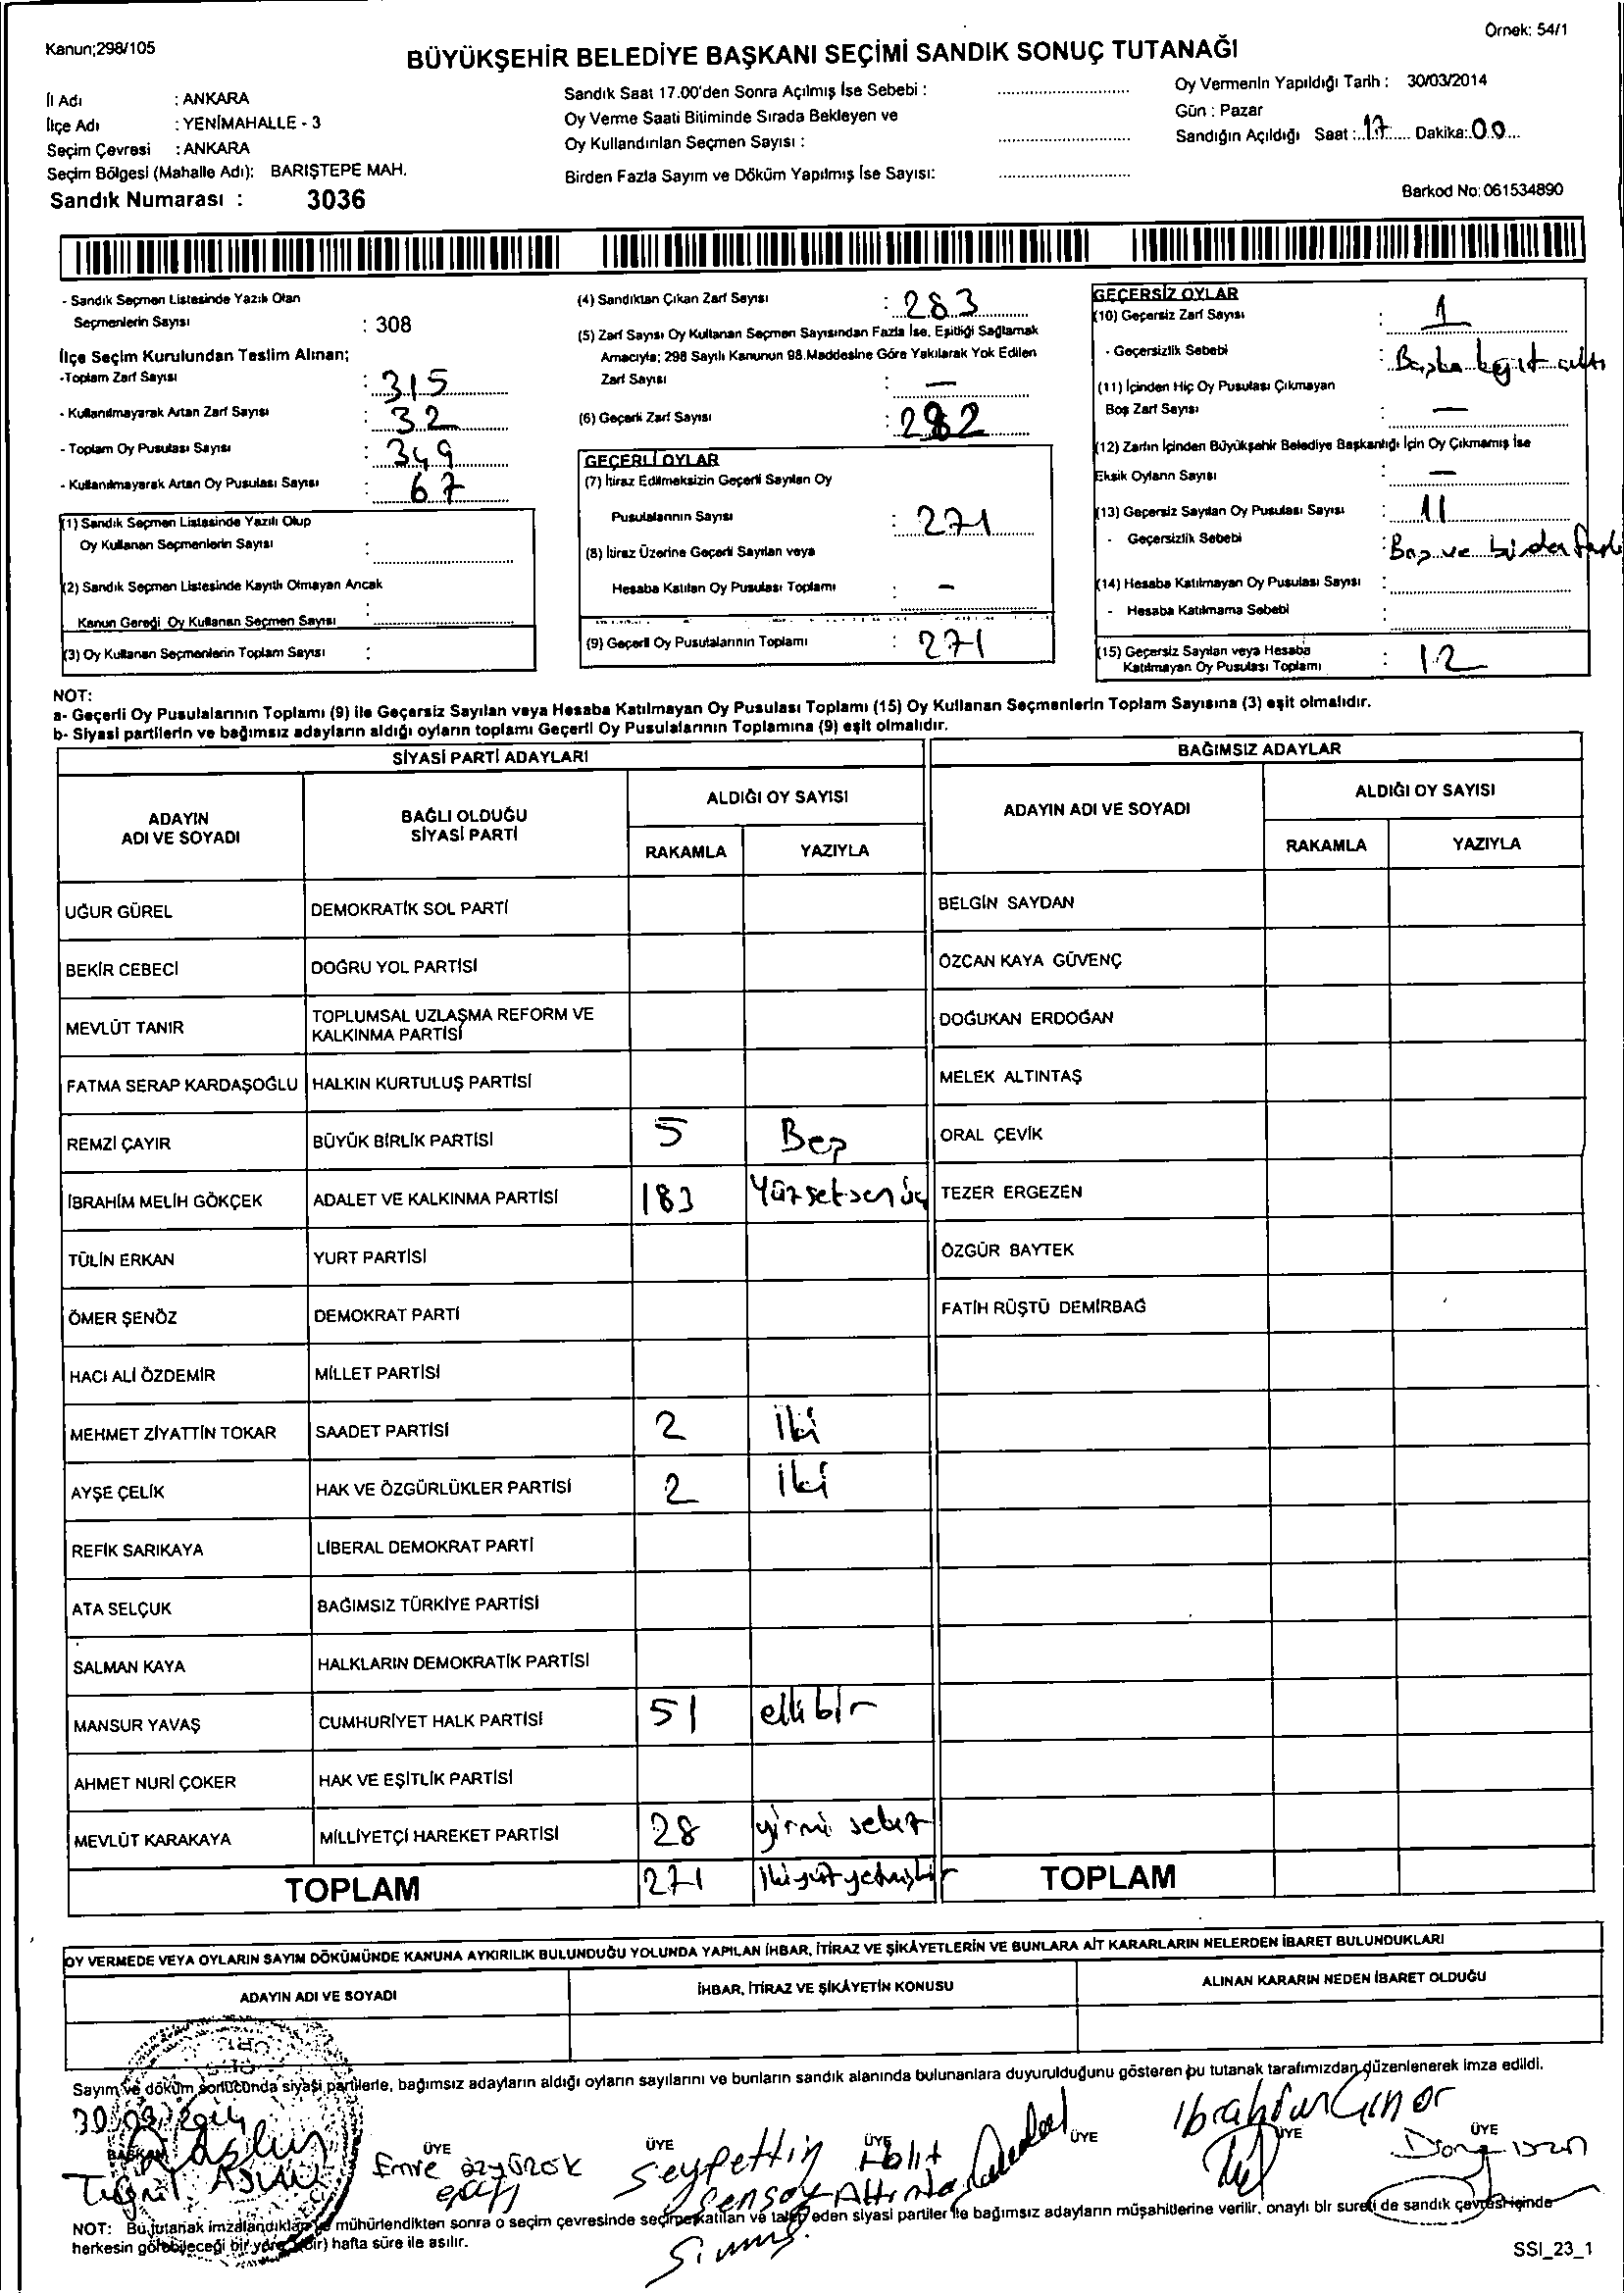 Kanun;298/105
Örnek: 54/1
BÜYÜKŞEHİR BELEDİYE BAŞKANI SEÇİMİ SANDIK SONUÇ TUTANAĞI
İl Adı : ANKARA
İlçe Adı : YENİMAHALLE - 3
Seçim Çevresi : ANKARA
Seçim Bölgesi (Mahalle Adı): BARIŞTEPE MAH.
Sandık Numarası : 3036
Sandık Saat 17.00'den Sonra Açılmış İse Sebebi :
Oy Verme Saati Bitiminde Sırada Bekleyen ve
Oy Kullandırılan Seçmen Sayısı :
Birden Fazla Sayım ve Döküm Yapılmış İse Sayısı:
Oy Vermenin Yapıldığı Tarih : 30/03/2014
Gün : Pazar
Sandığın Açıldığı Saat : 17 Dakika: 00
Barkod No: 061534890
- Sandık Seçmen Listesinde Yazılı Olan
Seçmenlerin Sayısı : 308
İlçe Seçim Kurulundan Teslim Alınan;
-Toplam Zarf Sayısı : 315
- Kullanılmayarak Artan Zarf Sayısı : 32
- Toplam Oy Pusulası Sayısı : 349
- Kullanılmayarak Artan Oy Pusulası Sayısı : 67
(1) Sandık Seçmen Listesinde Yazılı Olup
Oy Kullanan Seçmenlerin Sayısı :
(2) Sandık Seçmen Listesinde Kayıtlı Olmayan Ancak
Kanun Gereği Oy Kullanan Seçmen Sayısı :
(3) Oy Kullanan Seçmenlerin Toplam Sayısı :
(4) Sandıktan Çıkan Zarf Sayısı : 283
(5) Zarf Sayısı Oy Kullanan Seçmen Sayısından Fazla İse, Eşitliği Sağlamak
Amacıyla; 298 Sayılı Kanunun 98.Maddesine Göre Yakılarak Yok Edilen
Zarf Sayısı : -
(6) Geçerli Zarf Sayısı : 282
GEÇERLİ OYLAR
(7) İtiraz Edilmeksizin Geçerli Sayılan Oy
Pusulalarının Sayısı : 271
(8) İtiraz Üzerine Geçerli Sayılan veya
Hesaba Katılan Oy Pusulası Toplamı : -
(9) Geçerli Oy Pusulalarının Toplamı : 271
GEÇERSİZ OYLAR
(10) Geçersiz Zarf Sayısı : 1
- Geçersizlik Sebebi : Başka kağıt
(11) İçinden Hiç Oy Pusulası Çıkmayan
Boş Zarf Sayısı : -
(12) Zarfın İçinden Büyükşehir Belediye Başkanlığı İçin Oy Çıkmamış İse
Eksik Oyların Sayısı : -
(13) Geçersiz Sayılan Oy Pusulası Sayısı : 11
- Geçersizlik Sebebi : Boş ve birden fazla
(14) Hesaba Katılmayan Oy Pusulası Sayısı :
- Hesaba Katılmama Sebebi :
(15) Geçersiz Sayılan veya Hesaba
Katılmayan Oy Pusulası Toplamı : 12
NOT:
a- Geçerli Oy Pusulalarının Toplamı (9) ile Geçersiz Sayılan veya Hesaba Katılmayan Oy Pusulası Toplamı (15) Oy Kullanan Seçmenlerin Toplam Sayısına (3) eşit olmalıdır.
b- Siyasi partilerin ve bağımsız adayların aldığı oyların toplamı Geçerli Oy Pusulalarının Toplamına (9) eşit olmalıdır.
SİYASİ PARTİ ADAYLARI
BAĞIMSIZ ADAYLAR
ADAYIN
ADI VE SOYADI
BAĞLI OLDUĞU
SİYASİ PARTİ
ALDIĞI OY SAYISI
RAKAMLA YAZIYLA
ADAYIN ADI VE SOYADI
ALDIĞI OY SAYISI
RAKAMLA YAZIYLA
UĞUR GÜREL DEMOKRATİK SOL PARTİ BELGİN SAYDAN
BEKİR CEBECİ DOĞRU YOL PARTİSİ ÖZCAN KAYA GÜVENÇ
MEVLÜT TANIR TOPLUMSAL UZLAŞMA REFORM VE
KALKINMA PARTİSİ DOĞUKAN ERDOĞAN
FATMA SERAP KARDAŞOĞLU HALKIN KURTULUŞ PARTİSİ MELEK ALTINTAŞ
REMZİ ÇAYIR BÜYÜK BİRLİK PARTİSİ 5 Beş ORAL ÇEVİK
İBRAHİM MELİH GÖKÇEK ADALET VE KALKINMA PARTİSİ 183 Yüzseksenüç TEZER ERGEZEN
TÜLİN ERKAN YURT PARTİSİ ÖZGÜR BAYTEK
ÖMER ŞENÖZ DEMOKRAT PARTİ FATİH RÜŞTÜ DEMİRBAĞ
HACI ALİ ÖZDEMİR MİLLET PARTİSİ
MEHMET ZİYATTİN TOKAR SAADET PARTİSİ 2 iki
AYŞE ÇELİK HAK VE ÖZGÜRLÜKLER PARTİSİ 2 iki
REFİK SARIKAYA LİBERAL DEMOKRAT PARTİ
ATA SELÇUK BAĞIMSIZ TÜRKİYE PARTİSİ
SALMAN KAYA HALKLARIN DEMOKRATİK PARTİSİ
MANSUR YAVAŞ CUMHURİYET HALK PARTİSİ 51 ellibir
AHMET NURİ ÇOKER HAK VE EŞİTLİK PARTİSİ
MEVLÜT KARAKAYA MİLLİYETÇİ HAREKET PARTİSİ 28 yirmi sekiz
TOPLAM 271 ikiyüzyetmişbir TOPLAM
OY VERMEDE VEYA OYLARIN SAYIM DÖKÜMÜNDE KANUNA AYKIRILIK BULUNDUĞU YOLUNDA YAPILAN İHBAR, İTİRAZ VE ŞİKÂYETLERİN VE BUNLARA AİT KARARLARIN NELERDEN İBARET BULUNDUKLARI
ADAYIN ADI VE SOYADI İHBAR, İTİRAZ VE ŞİKÂYETİN KONUSU ALINAN KARARIN NEDEN İBARET OLDUĞU
Sayım ve döküm sonucunda siyasi partilerle, bağımsız adayların aldığı oyların sayılarını ve bunların sandık alanında bulunanlara duyurulduğunu gösteren bu tutanak tarafımızdan düzenlenerek imza edildi.
30/03/2014
BAŞKAN ÜYE ÜYE ÜYE ÜYE ÜYE ÜYE
Tuğrul ASLAN Emre özyürek Seyfettin Şensoy
NOT: Bu tutanak imzalandıktan ve mühürlendikten sonra o seçim çevresinde seçime katılan ve talep eden siyasi partiler ile bağımsız adayların müşahitlerine verilir, onaylı bir sureti de sandık çevresi içinde
herkesin görebileceği bir yere (bir) hafta süre ile asılır.
SSI_23_1